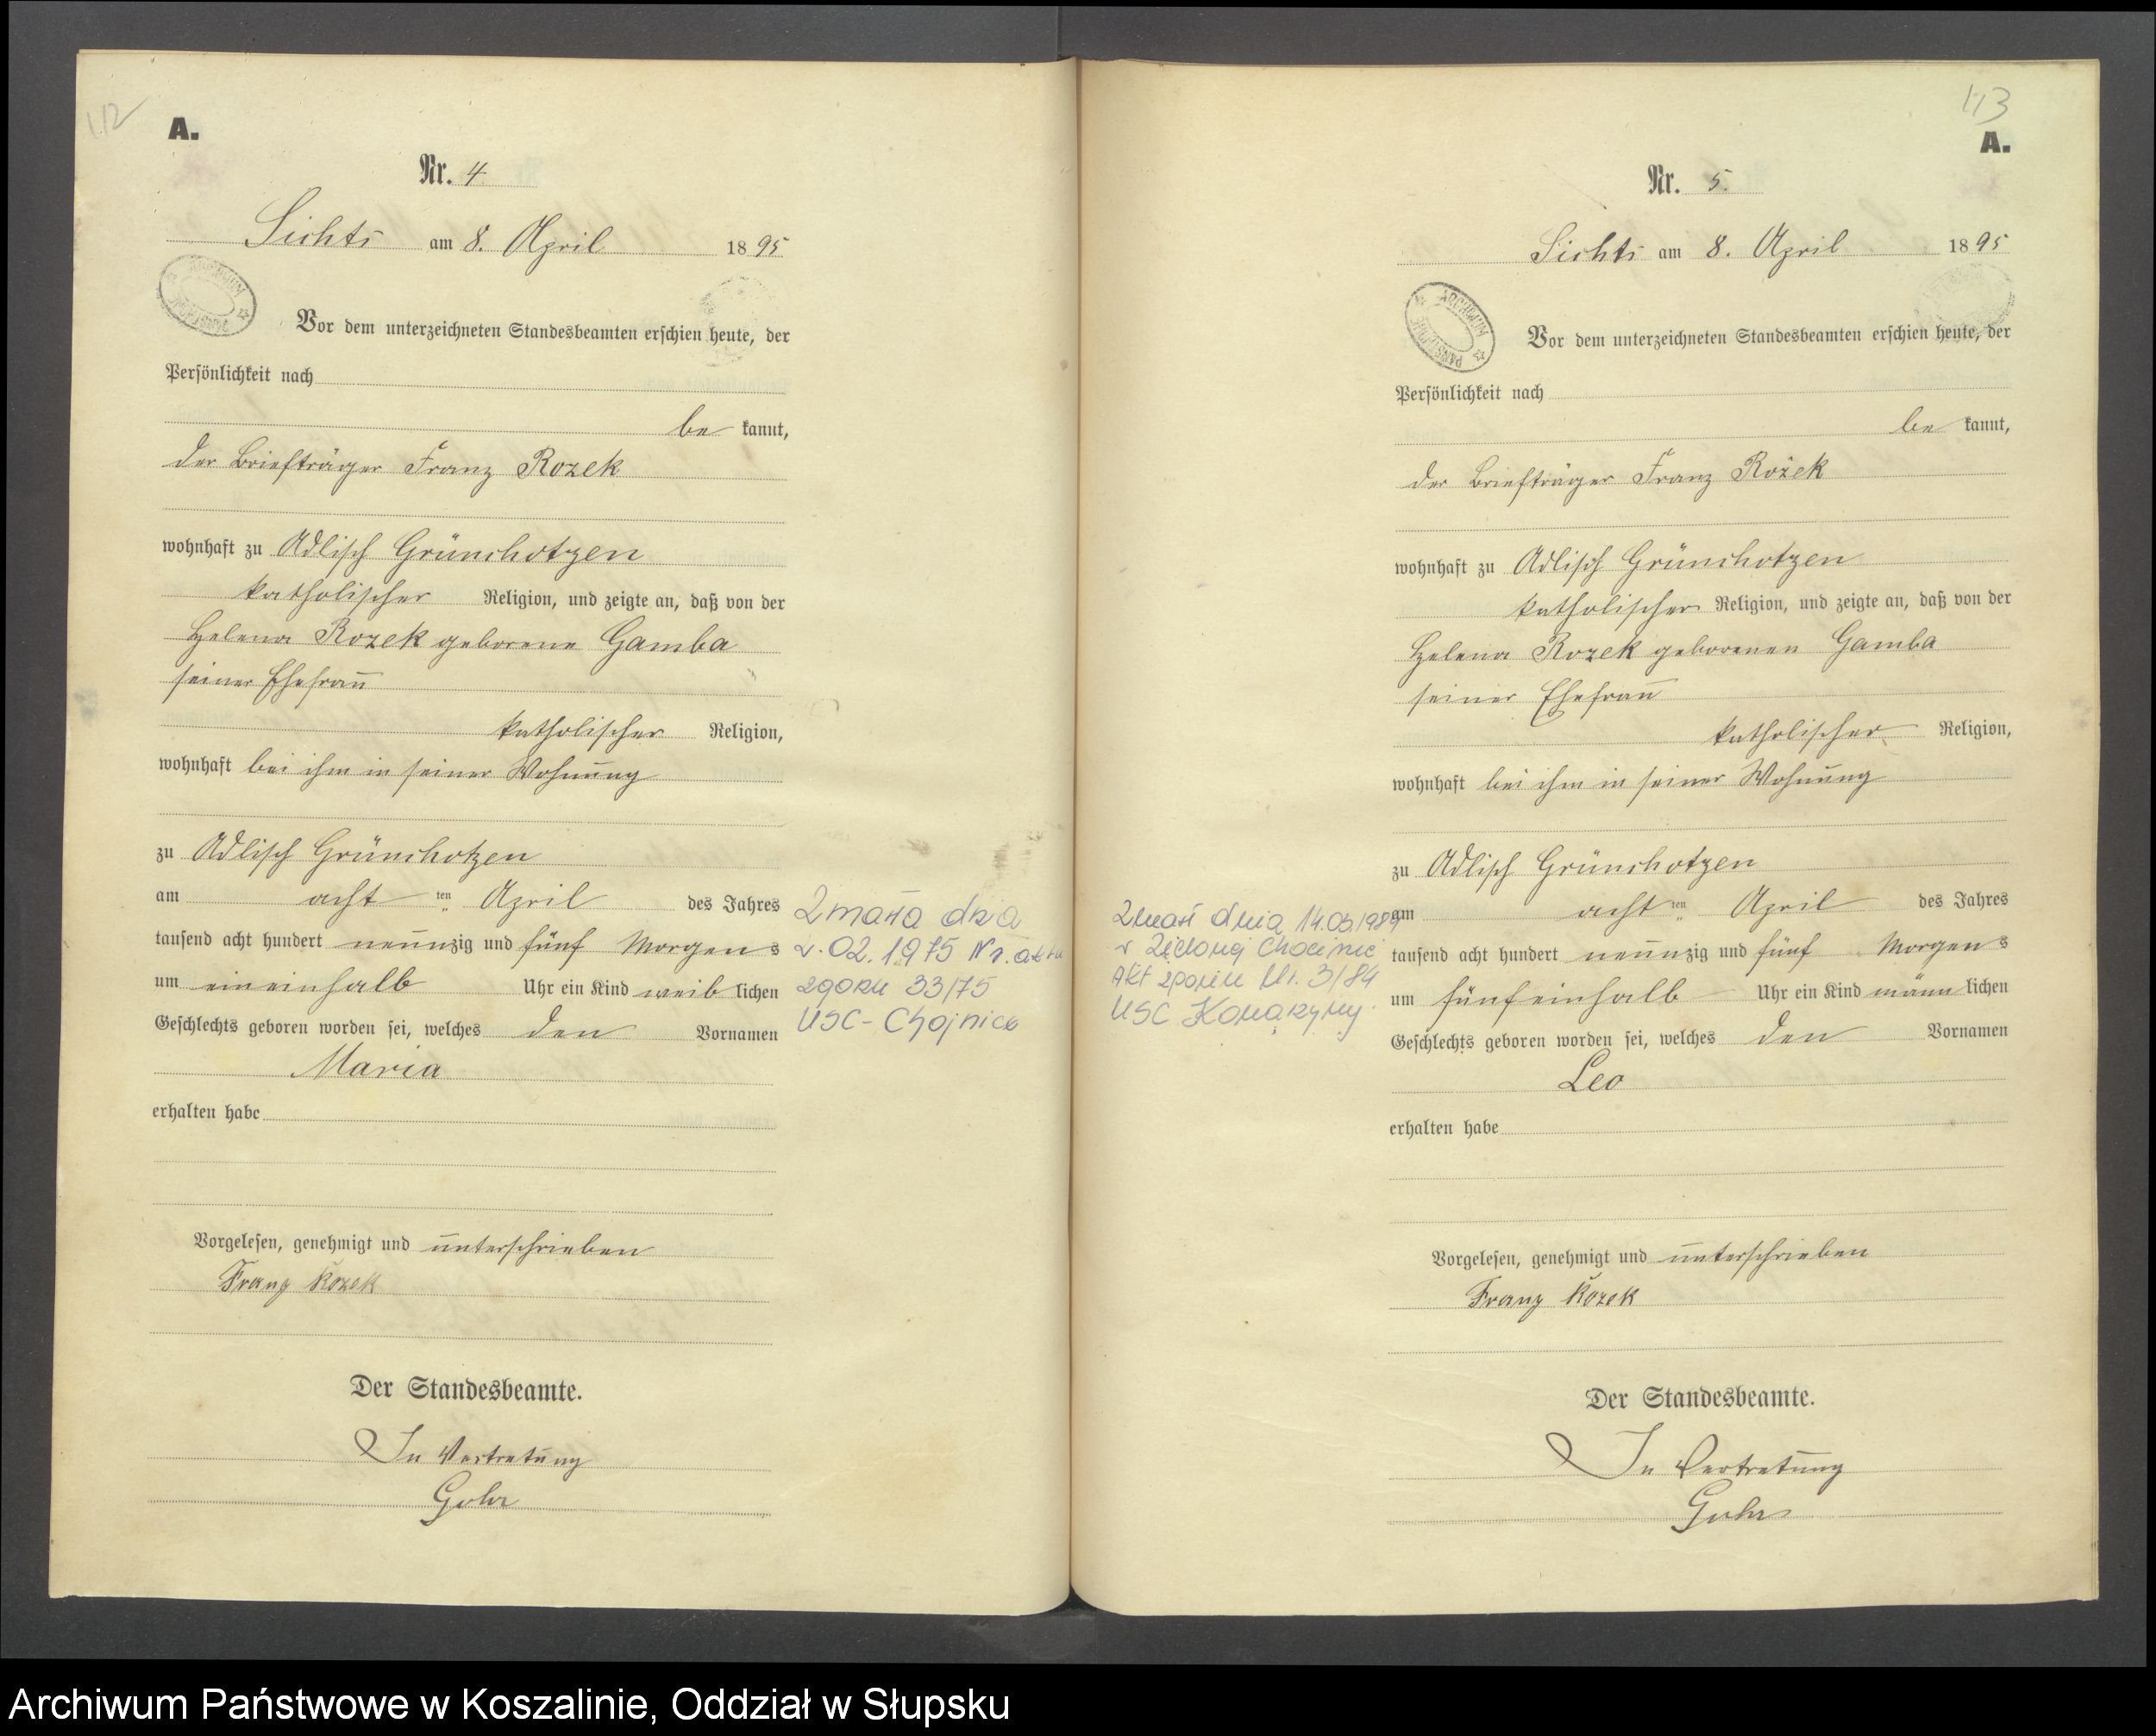 112
A.
Nr. 4
Sichts am 8. April 1895
Vor dem unterzeichneten Standesbeamten erschien heute, der
Persönlichkeit nach
be kannt,
der Briefträger Franz Rozek
wohnhaft zu Adlisch Grünchotzen
katholischer Religion, und zeigte an, daß von der
Helena Rozek geborene Gamba
seiner Ehefrau
katholischer Religion,
wohnhaft bei ihm in seiner Wohnung
zu Adlisch Grünchotzen
am acht ten April des Jahres
tausend acht hundert neunzig und fünf Morgens
um eineinhalb Uhr ein Kind weib lichen
Geschlechts geboren worden sei, welches den Vornamen
Maria
erhalten habe
Vorgelesen, genehmigt und unterschrieben
Franz Rozek
Der Standesbeamte.
In Vertretung
Gohr
Zmarła dnia
02.1975 Nr. aktu
zgonu 33/75
USC - Chojnice
113
A.
Nr. 5.
Sichts am 8. April 1895
ARCHIWUM PAŃSTWOWE
Vor dem unterzeichneten Standesbeamten erschien heute, der
Persönlichkeit nach
be kannt,
der Briefträger Franz Rožek
wohnhaft zu Adlisch Grünchotzen
katholischer Religion, und zeigte an, daß von der
Helena Rozek geborenen Gamba
seiner Ehefrau
katholischer Religion,
wohnhaft bei ihm in seiner Wohnung
zu Adlisch Grünchotzen
am acht ten April des Jahres
tausend acht hundert neunzig und fünf Morgens
um fünfeinhalb Uhr ein Kind männ lichen
Geschlechts geboren worden sei, welches den Vornamen
Leo
erhalten habe
Vorgelesen, genehmigt und unterschrieben
Franz Rozek
Der Standesbeamte.
In Vertretung
Gohr
Zmarł dnia
Akt zgonu Nr. 3/84
USC Konarzyny
Archiwum Państwowe w Koszalinie, Oddział w Słupsku